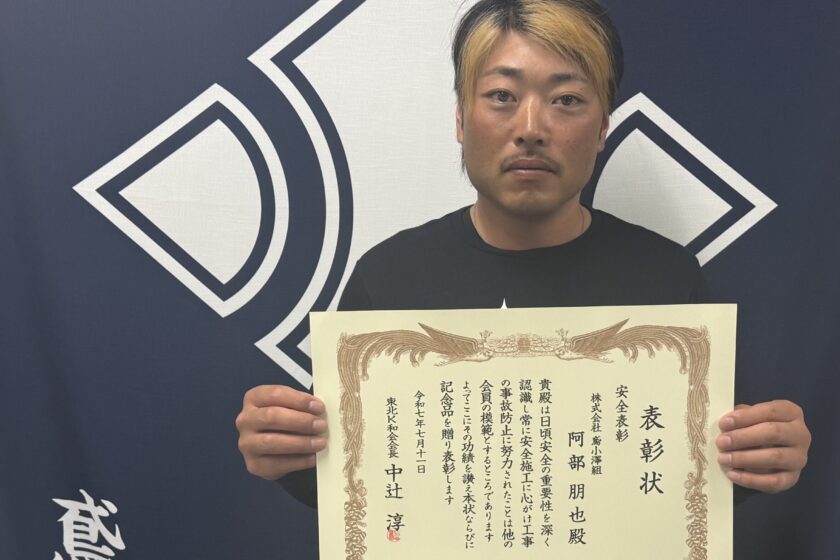 表彰状
安全表彰
株式会社 鳶小澤組
阿部 朋也殿
貴殿は日頃安全の重要性を深く
認識し常に安全施工に心がけ工事
の事故防止に努力されたことは他の
会員の模範とするところであります
よってここにその功績を讃え本状ならびに
記念品を贈り表彰します
令和七年七月十一日
東北K和会会長 中辻 淳
鳶